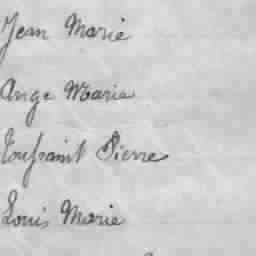 Jean Marie
Ange Marie
Toussaint Pierre
Louis Marie